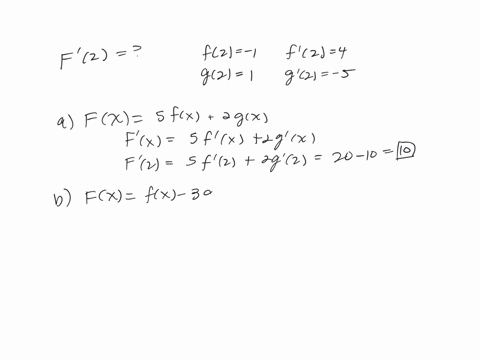 F'(2) = ? f(2) = -1 f'(2) = 4
g(2) = 1 g'(2) = -5
a) F(x) = 5f(x) + 2g(x)
F'(x) = 5f'(x) + 2g'(x)
F'(2) = 5f'(2) + 2g'(2) = 20 - 10 = 10
b) F(x) = f(x) - 3